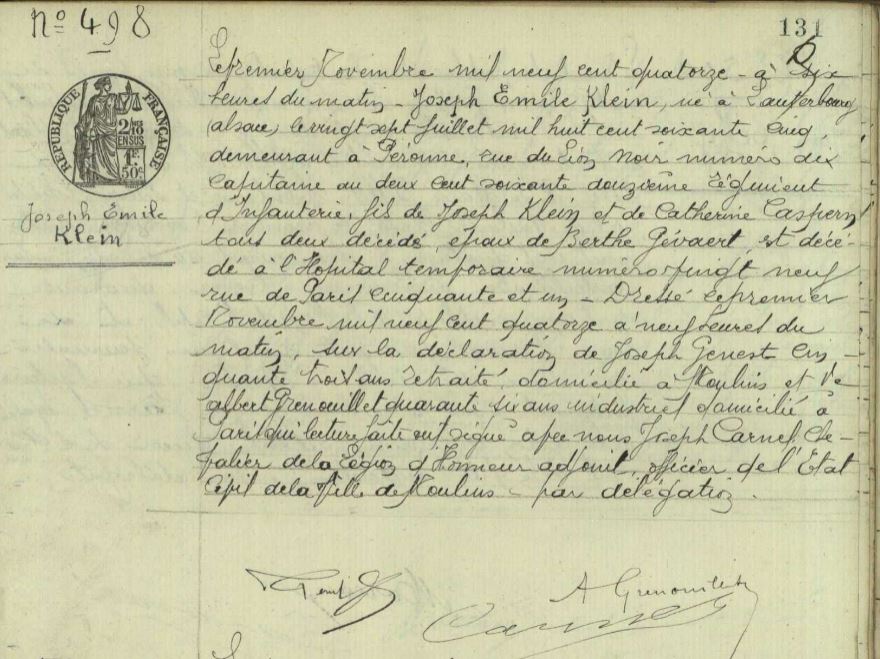 No 498
131
RÉPUBLIQUE FRANÇAISE
2/10 EN SUS
1F.
50c
Joseph Emile
Klein
Le premier Novembre mil neuf cent quatorze - à six
heures du matin - Joseph Emile Klein, né à Lauterbourg
(alsace) le vingt sept Juillet mil huit cent soixante cinq,
demeurant à Peronne, rue du Lion Noir numéro dix
Capitaine au deux cent soixante douzième régiment
d'Infanterie, fils de Joseph Klein et de Catherine Caspern
tous deux décédé, epoux de Berthe Gévaert, est décé-
dé à l'Hopital temporaire numéro vingt neuf
rue de Paris cinquante et un - Dressé le premier
Novembre mil neuf cent quatorze à neuf heures du
matin, sur la déclaration de Joseph Genest cin-
quante trois ans retraité domicilié à Moulins et de
albert Grenouillet quarante six ans industriel domicilié à
Paris qui lecture faite ont signé avec nous Joseph Carnef, Che-
valier de la Légion d'Honneur adjoint, officier de l'Etat
Civil de la Ville de Moulins - par délégation.
A Grenouillet